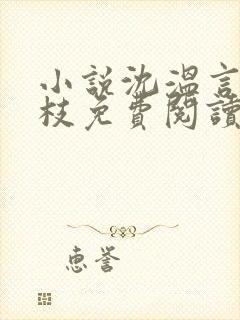 小說沈溫言
枝免費閱讀
惠譽